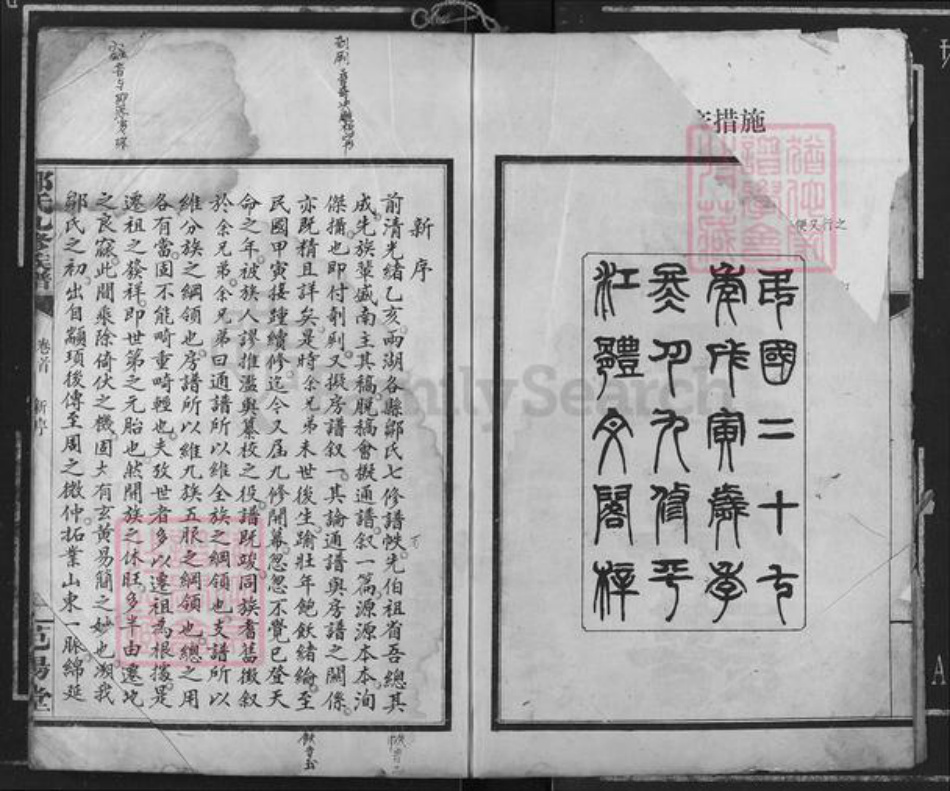 措施
便又行之
民國二十七
年戊寅歲孝
義切九修平
江體文閣梓
新序
前清光緒乙亥兩湖各縣鄒氏七修譜帙先伯祖省吾總其
成先族輩盛南主其稿脫稿會擬通譜叙一篇源源本本洵
傑搆也即付剞劂又擬房譜叙一其論通譜與房譜之關係
亦既精且詳矣是時余兄弟未世後生踰壯年飽飲緒綸至
民國甲寅接踵續修迄今又届九修開幕忽忽不覺已登天
命之年被族人謬推濫與纂校之役譜既竣同族耆舊徵叙
於余兄弟余兄弟曰通譜所以維全族之綱領也支譜所以
維分族之綱領也房譜所以維九族五服之綱領也總之用
各有當固不能畸重畸輕也夫攷世者多以遷祖為根據是
遷祖之發祥即世第之元胎也然開族之休旺多半由遷地
之良窳此間乘除倚伏之機固大有玄黃易簡之妙也溯我
鄒氏之初出自顓頊後傳至周之微仲拓業山東一脈綿延
鄒氏九修族譜
卷首
新序